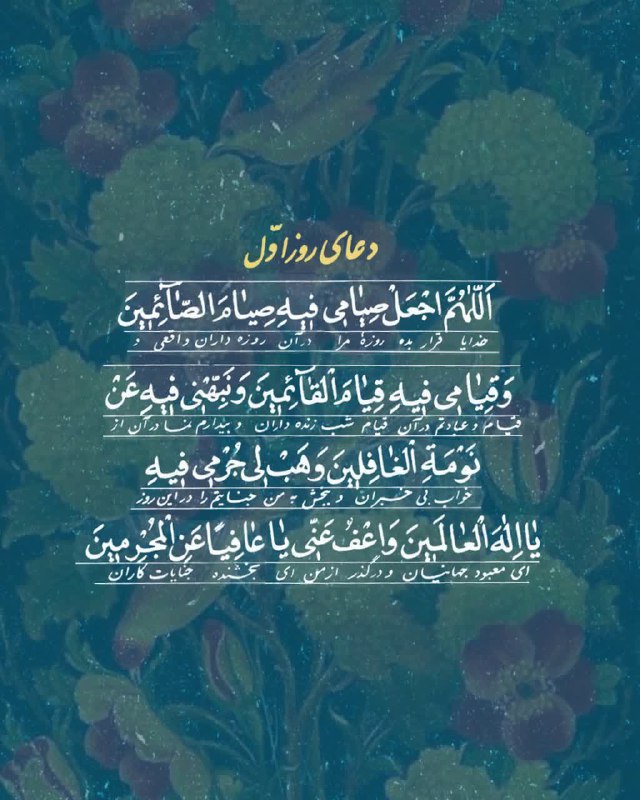 دعای روز اوّل
اَللّٰهُمَّ اجْعَلْ صِیٰامی فیهِ صِیٰامَ الصّٰآئِمینَ
خدایا قرار بده روزهٔ مرا درآن روزه داران واقعی و
وَقِیٰامی فیهِ قِیٰامَ الْقٰآئِمینَ وَنَبِّهْنی فیهِ عَنْ
قیام و عبادتم درآن قیام شب زنده داران و بیدارم نما در آن از
نَوْمَةِ الْغٰافِلینَ وَهَبْ لی جُرْمی فیهِ
خواب بی خبران و ببخش به من جنایتم را در این روز
یٰا اِلٰهَ الْعٰالَمینَ وَاعْفُ عَنّی یٰا عٰافِیًا عَنِ الْمُجْرِمینَ
ای معبود جهانیان و درگذر از من ای بخشنده جنایات کاران